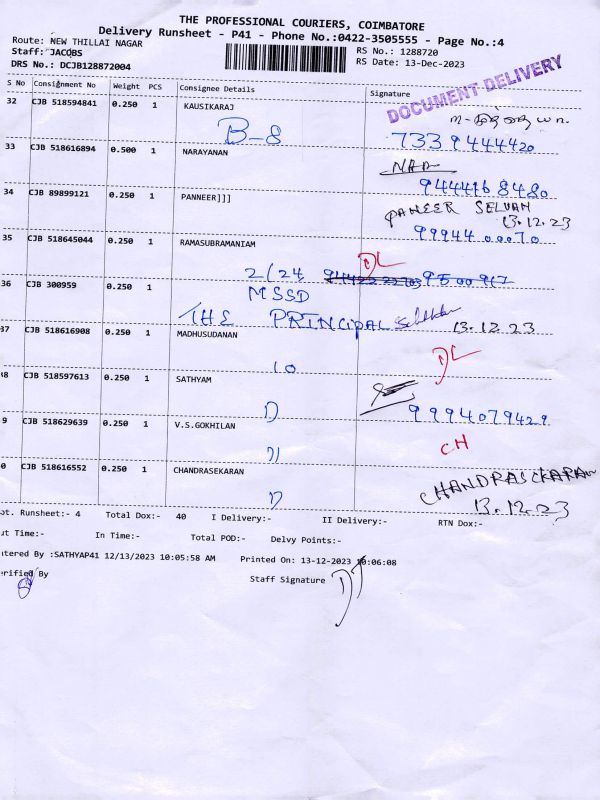 THE PROFESSIONAL COURIERS, COIMBATORE
Delivery Runsheet - P41 - Phone No.:0422-3505555 - Page No.:4
Route: NEW THILLAI NAGAR
RS No.: 1288720
Staff: JACOBS
RS Date: 13-Dec-2023
DRS No.: DCJB128872004
DOCUMENT DELIVERY
S No Consignment No Weight PCS Consignee Details Signature
32 CJB 518594841 0.250 1 KAUSIKARAJ
B-8 7339444420
33 CJB 518616894 0.500 1 NARAYANAN
9444168480
34 CJB 89899121 0.250 1 PANNEER]]] PANEER SELVAM
13.12.23
99944 00070
35 CJB 518645044 0.250 1 RAMASUBRAMANIAM
DL
2/24 9500917
36 CJB 300959 0.250 1 MSSD
THE PRINCIPAL 13.12.23
37 CJB 518616908 0.250 1 MADHUSUDANAN
10 DL
8 CJB 518597613 0.250 1 SATHYAM
D 9994079429
9 CJB 518629639 0.250 1 V.S.GOKHILAN
CH
0 CJB 518616552 0.250 1 CHANDRASEKARAN
CHANDRASEKARAN
13.12.23
ot. Runsheet:- 4 Total Dox:- 40 I Delivery:- II Delivery:- RTN Dox:-
ut Time:- In Time:- Total POD:- Delvy Points:-
tered By :SATHYAP41 12/13/2023 10:05:58 AM Printed On: 13-12-2023 10:06:08
erified By
Staff Signature